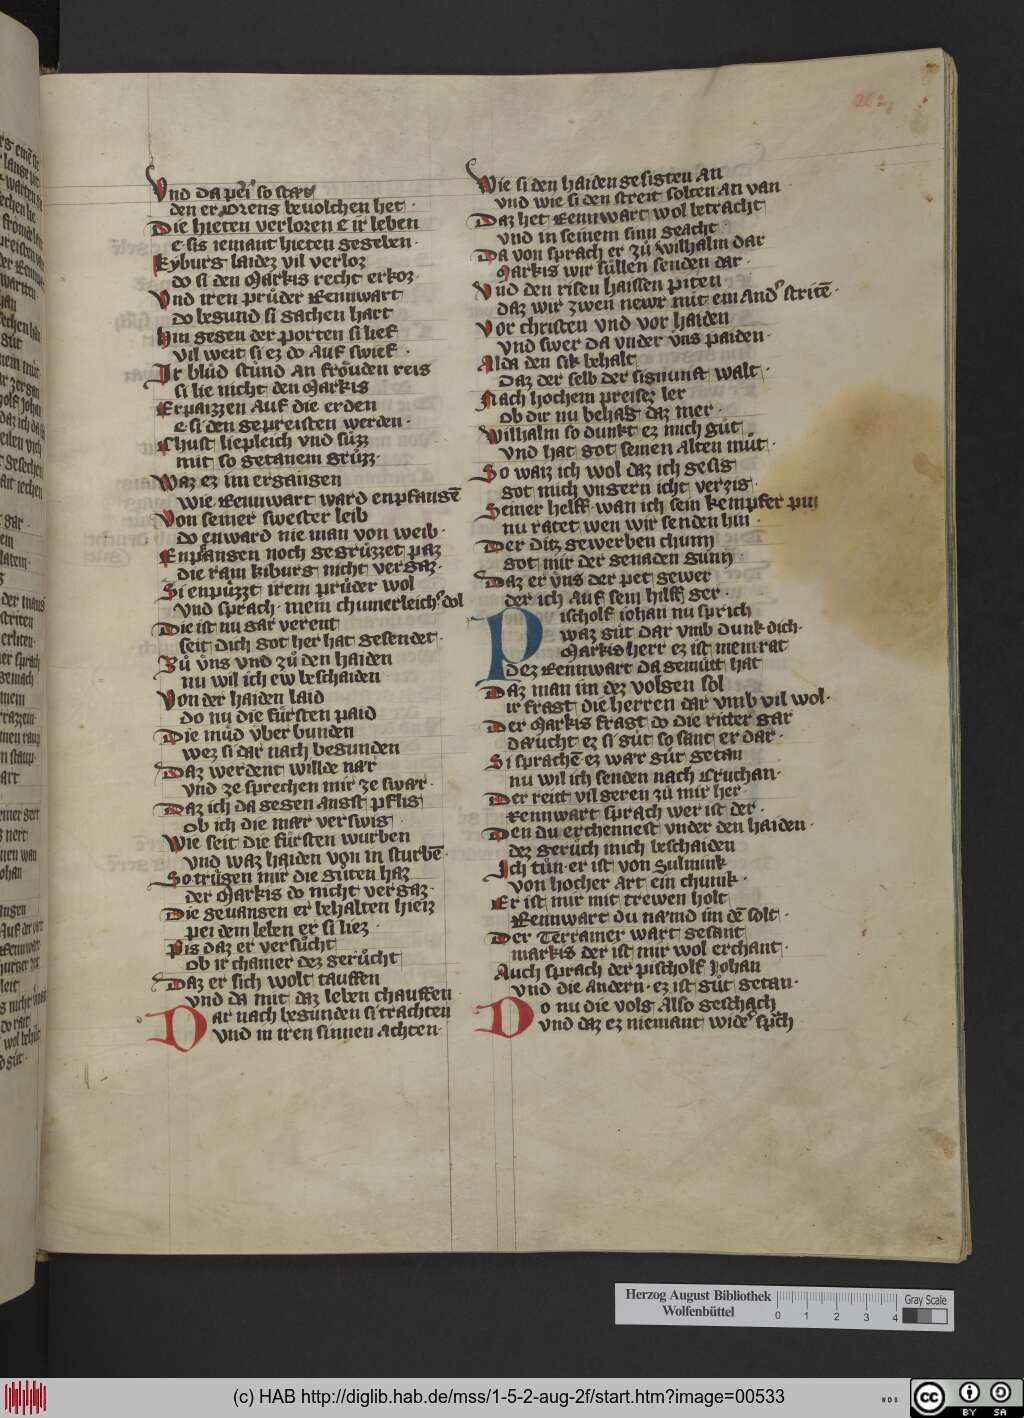 262
Vnd da pei so starb
den er Orens beuolchen het ·
Die hieten verlorn e ir leben
e sis iemant hieten gegeben ·
Kyburg laidez vil verloz
do si den Markis recht erkoz ·
Vnd iren průder Rennwart
do begund si gachen hart
Hin gegen der porten si lief
vil weit si ez do auf swief ·
Ir blůd stůnd an frőuden reis
si lie nicht den Markis
Erpaizzen auf die erden
e si den gepreisten werden ·
Chust liepleich vnd sůzz
mit so getanem grůzz ·
Waz ez im ergangen
wie Rennwart ward enpfangē
Von seiner swester leib
do enward nie man von weib ·
Enpfangen noch gegrůzzet paz
die rain kiburg nicht vergaz ·
Si enpůzzt irem průder wol
vnd sprach · mein chumerleich dol
Die ist nu gar verent
seit dich got her hat gesendet ·
Zů ůns vnd zů den haiden
nu wil ich ew beschaiden
Von der haiden laid
do nu die fůrsten paid
Die můd vber bunden
wez si dar nach begunden
Daz werdent willde mar
vnd ze sprechen mir ze swar ·
Daz ich da gegen angst pflig
ob ich die mær verswig ·
Wie seit die fůrsten wurben
vnd waz haiden von in sturbē ·
So trůgen mir die gůten haz
der Markis do nicht vergaz ·
Die geuangen er behalten hiez
pei dem leben er si liez ·
Pis daz er versůcht
ob ir chainer dez gerůcht
Daz er sich wolt tauffen
vnd da mit daz leben chauffen
Dar nach begunden si trachten
vnd in iren sinnen achten ·
Wie si den haiden gesigten an
vnd wie si den streit solten an van
Daz het Rennwart wol betracht
vnd in seinem sinn geacht
Da von sprach er zů wilhalm dar
Markis wir sůllen senden dar ·
Vnd den risen haissen piten
daz wir zwen newr mit ein and' stritē ·
Vor christen vnd vor haiden
vnd swer da vnder vns paiden ·
Alda den sik behalt
Daz der selb der signunft walt ·
Nach hochem preisez ler
ob dir nu behag daz mer ·
Wilhalm so dunkt ez mich gůt
vnd hat got seinen alten můt ·
So waiz ich wol daz ich gesig
got mich vngern icht verzig ·
Seiner helff · wan ich sein kempfer pin
nu ratet wen wir senden hin ·
Der ditz gewerben chunn
got mir der genaden gunn ·
Daz er ůns der pet gewer
der ich auf sein hilff ger ·
Pischolf johan nu sprich
waz gůt dar vmb dunk dich ·
Markis herr ez ist mein rat
dez Rennwart da gemůt hat
Daz man im dez volgen sol
ir fragt die herren dar vmb vil wol ·
Der Markis fragt do die ritter gar
daucht ez si gůt so sant er dar ·
Si sprachē ez war gůt getan
nu wil ich senden nach Cruchan ·
Der reitt vil geren zů mir her ·
Rennwart sprach wer ist der ·
Den du erchennest vnder den haiden ·
dez gerůch mich beschaiden
Ich tůn · er ist von Sulmink
von hocher art ein chunk ·
Er ist mir mit trewen holt
Rennwart du namd im dē solt ·
Der Terramer wart gesant
markis der ist mir wol erchant ·
Auch sprach der pischolf Johan
vnd die andern · ez ist gůt getan ·
Do nu die volg also geschach
vnd daz ez niemant wide' sp̄ch
Herzog August Bibliothek
Wolfenbüttel
0 1 2 3 4
Gray Scale
(c) HAB http://diglib.hab.de/mss/1-5-2-aug-2f/start.htm?image=00533
WDB
cc BY SA